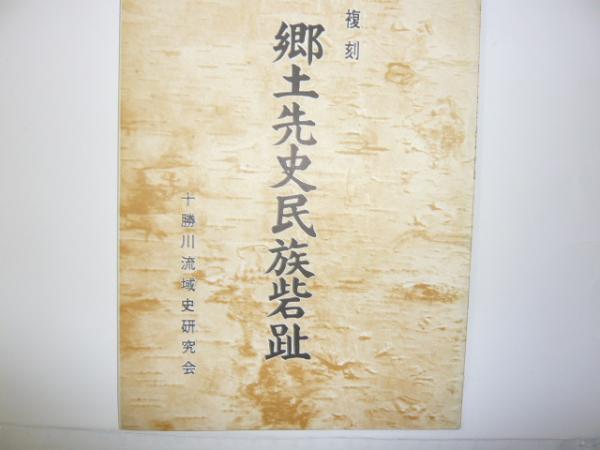 複刻
郷土先史民族砦趾
十勝川流域史研究会